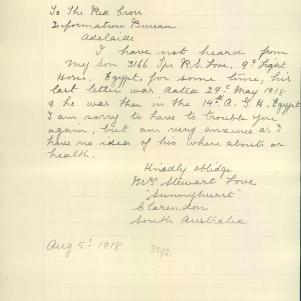 To The Red Cross
Information Bureau
Adelaide
I have not heard from
my son 3166 Tpr R.S. Love. 9th Light
Horse. Egypt, for some time, his
last letter was dated 29th May 1918
& he was then in the 14th A. G. H. Egypt
I am sorry to have to trouble you
again, but am very anxious as I
have no idea of his where abouts or
health.
Kindly oblidge
Mrs Stewart Love
"Sunnyhurst"
Clarendon
South Australia
Aug 5th 1918
3392